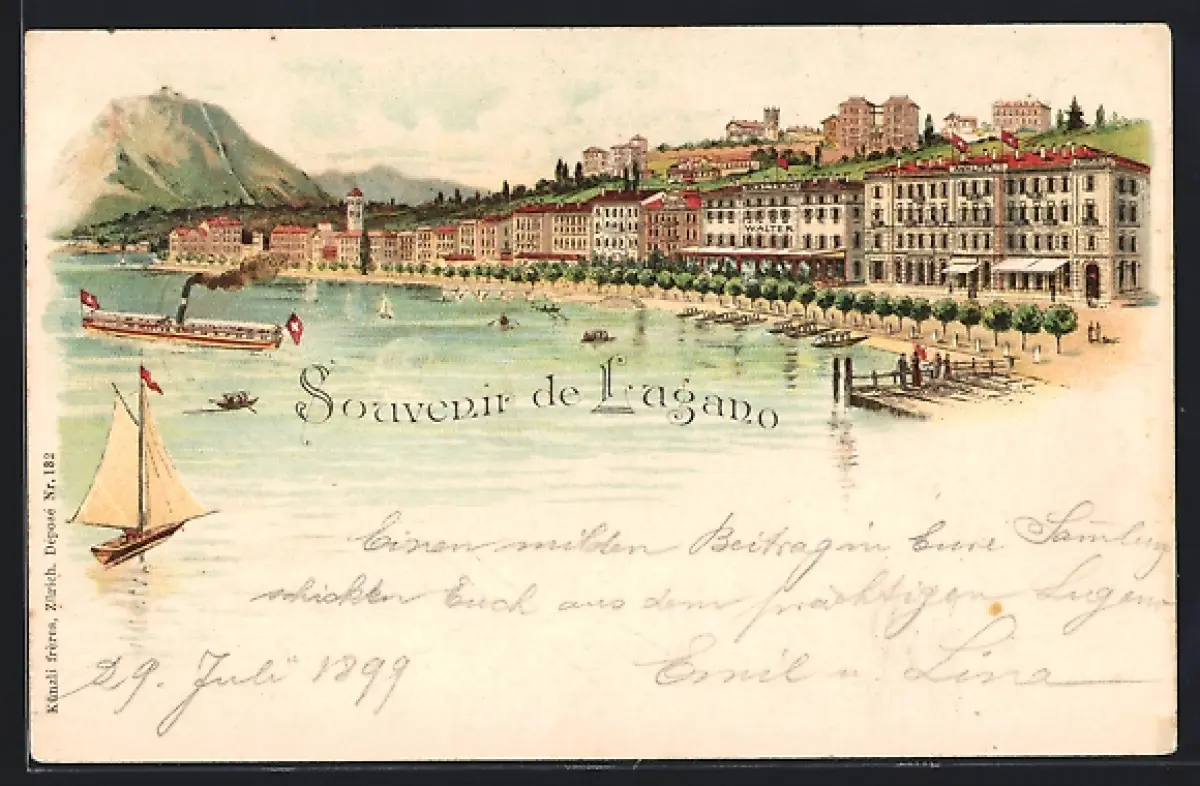 WALTER
Souvenir de Lugano
Einen milden Beitrag in Eure Samlung
schicken Euch aus dem prächtigen Lugano
29. Juli 1899 Emil u. Lina
Künzli frères, Zürich. Déposé Nr. 182